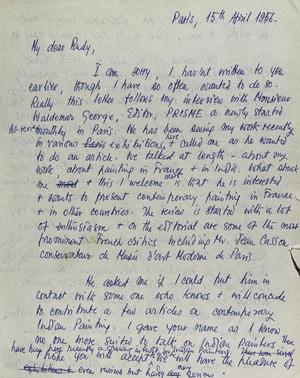 Paris, 15th April 1956.
My dear Rudy,
I am sorry, I havent written to you
earlier, though I have so often wanted to do so.
Really this letter follows my interview with Monsieur
Waldemar George, Editor, PRISME a newly started
monthly in Paris. He has been seeing my work recently
in various exhibitions, here + called me as he wanted
to do an article. We talked at length - about my
work about painting in France + in India. What struck
me most + this I welcome is that he is interested
+ wants to present contemporary painting in France
+ in other countries. The review is started with a lot
of enthusiasm + on the editorial are some of the most
prominent French critics including Mr. Jean Cassou
conservateur de Musée d'art Moderne de Paris.
He asked me if I could put him in
contact with some one who knows + will concede
to contribute a few articles on contemporary
Indian Painting. I gave your name as I know
no one more suited to talk on Indian painters
have been
I hope you will accept + will have the pleasure of
even reviews but having